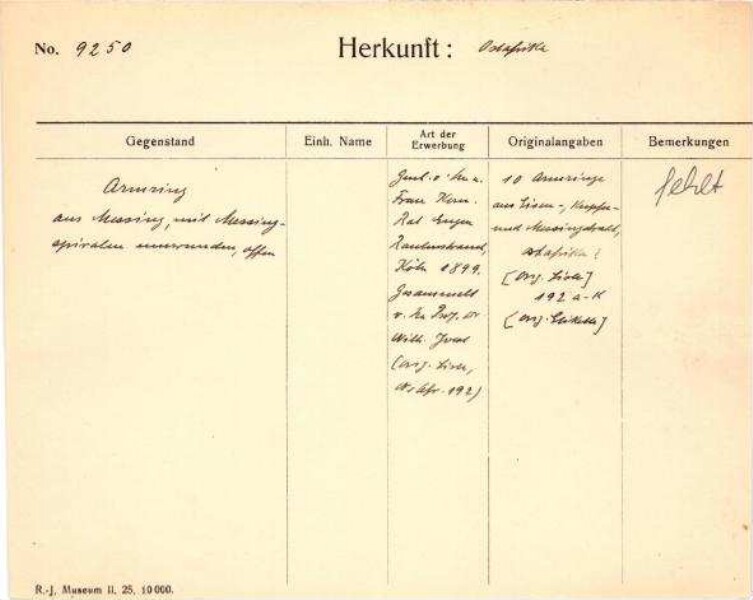 No. 9250
Herkunft: Ostafrika
Gegenstand
Einh. Name
Art der Erwerbung
Originalangaben
Bemerkungen
Armring
aus Messing, mit Messing-
spiralen umwunden, offen
Frau Kom.
Rat Eugen
Rautenstrauch,
Köln 1899.
Gesammelt
v. Prof. Dr
Wilh. Joest
(orig. Liste,
192)
10 Armringe
aus Eisen-, Kupfer-
und Messingdraht,
Ostafrika
[orig. Liste]
192 a-k
[orig. Etikette]
fehlt
R.-J. Museum II. 25. 10000.